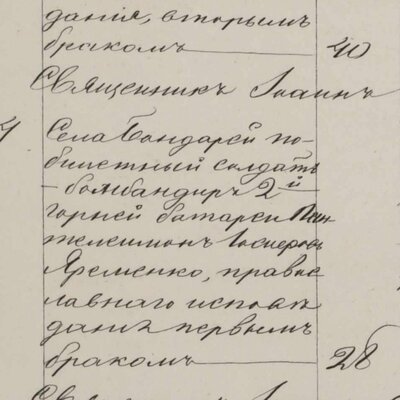 данія, вторымъ
бракомъ 40
Священникъ Іоаннъ
Села Бондарей по-
билетный солдатъ
- бомбандиръ 2й
горней батареи Пан-
телеимонъ Іосифовъ
Яременко, правос
лавнаго исповѣ
данія первымъ
бракомъ 28